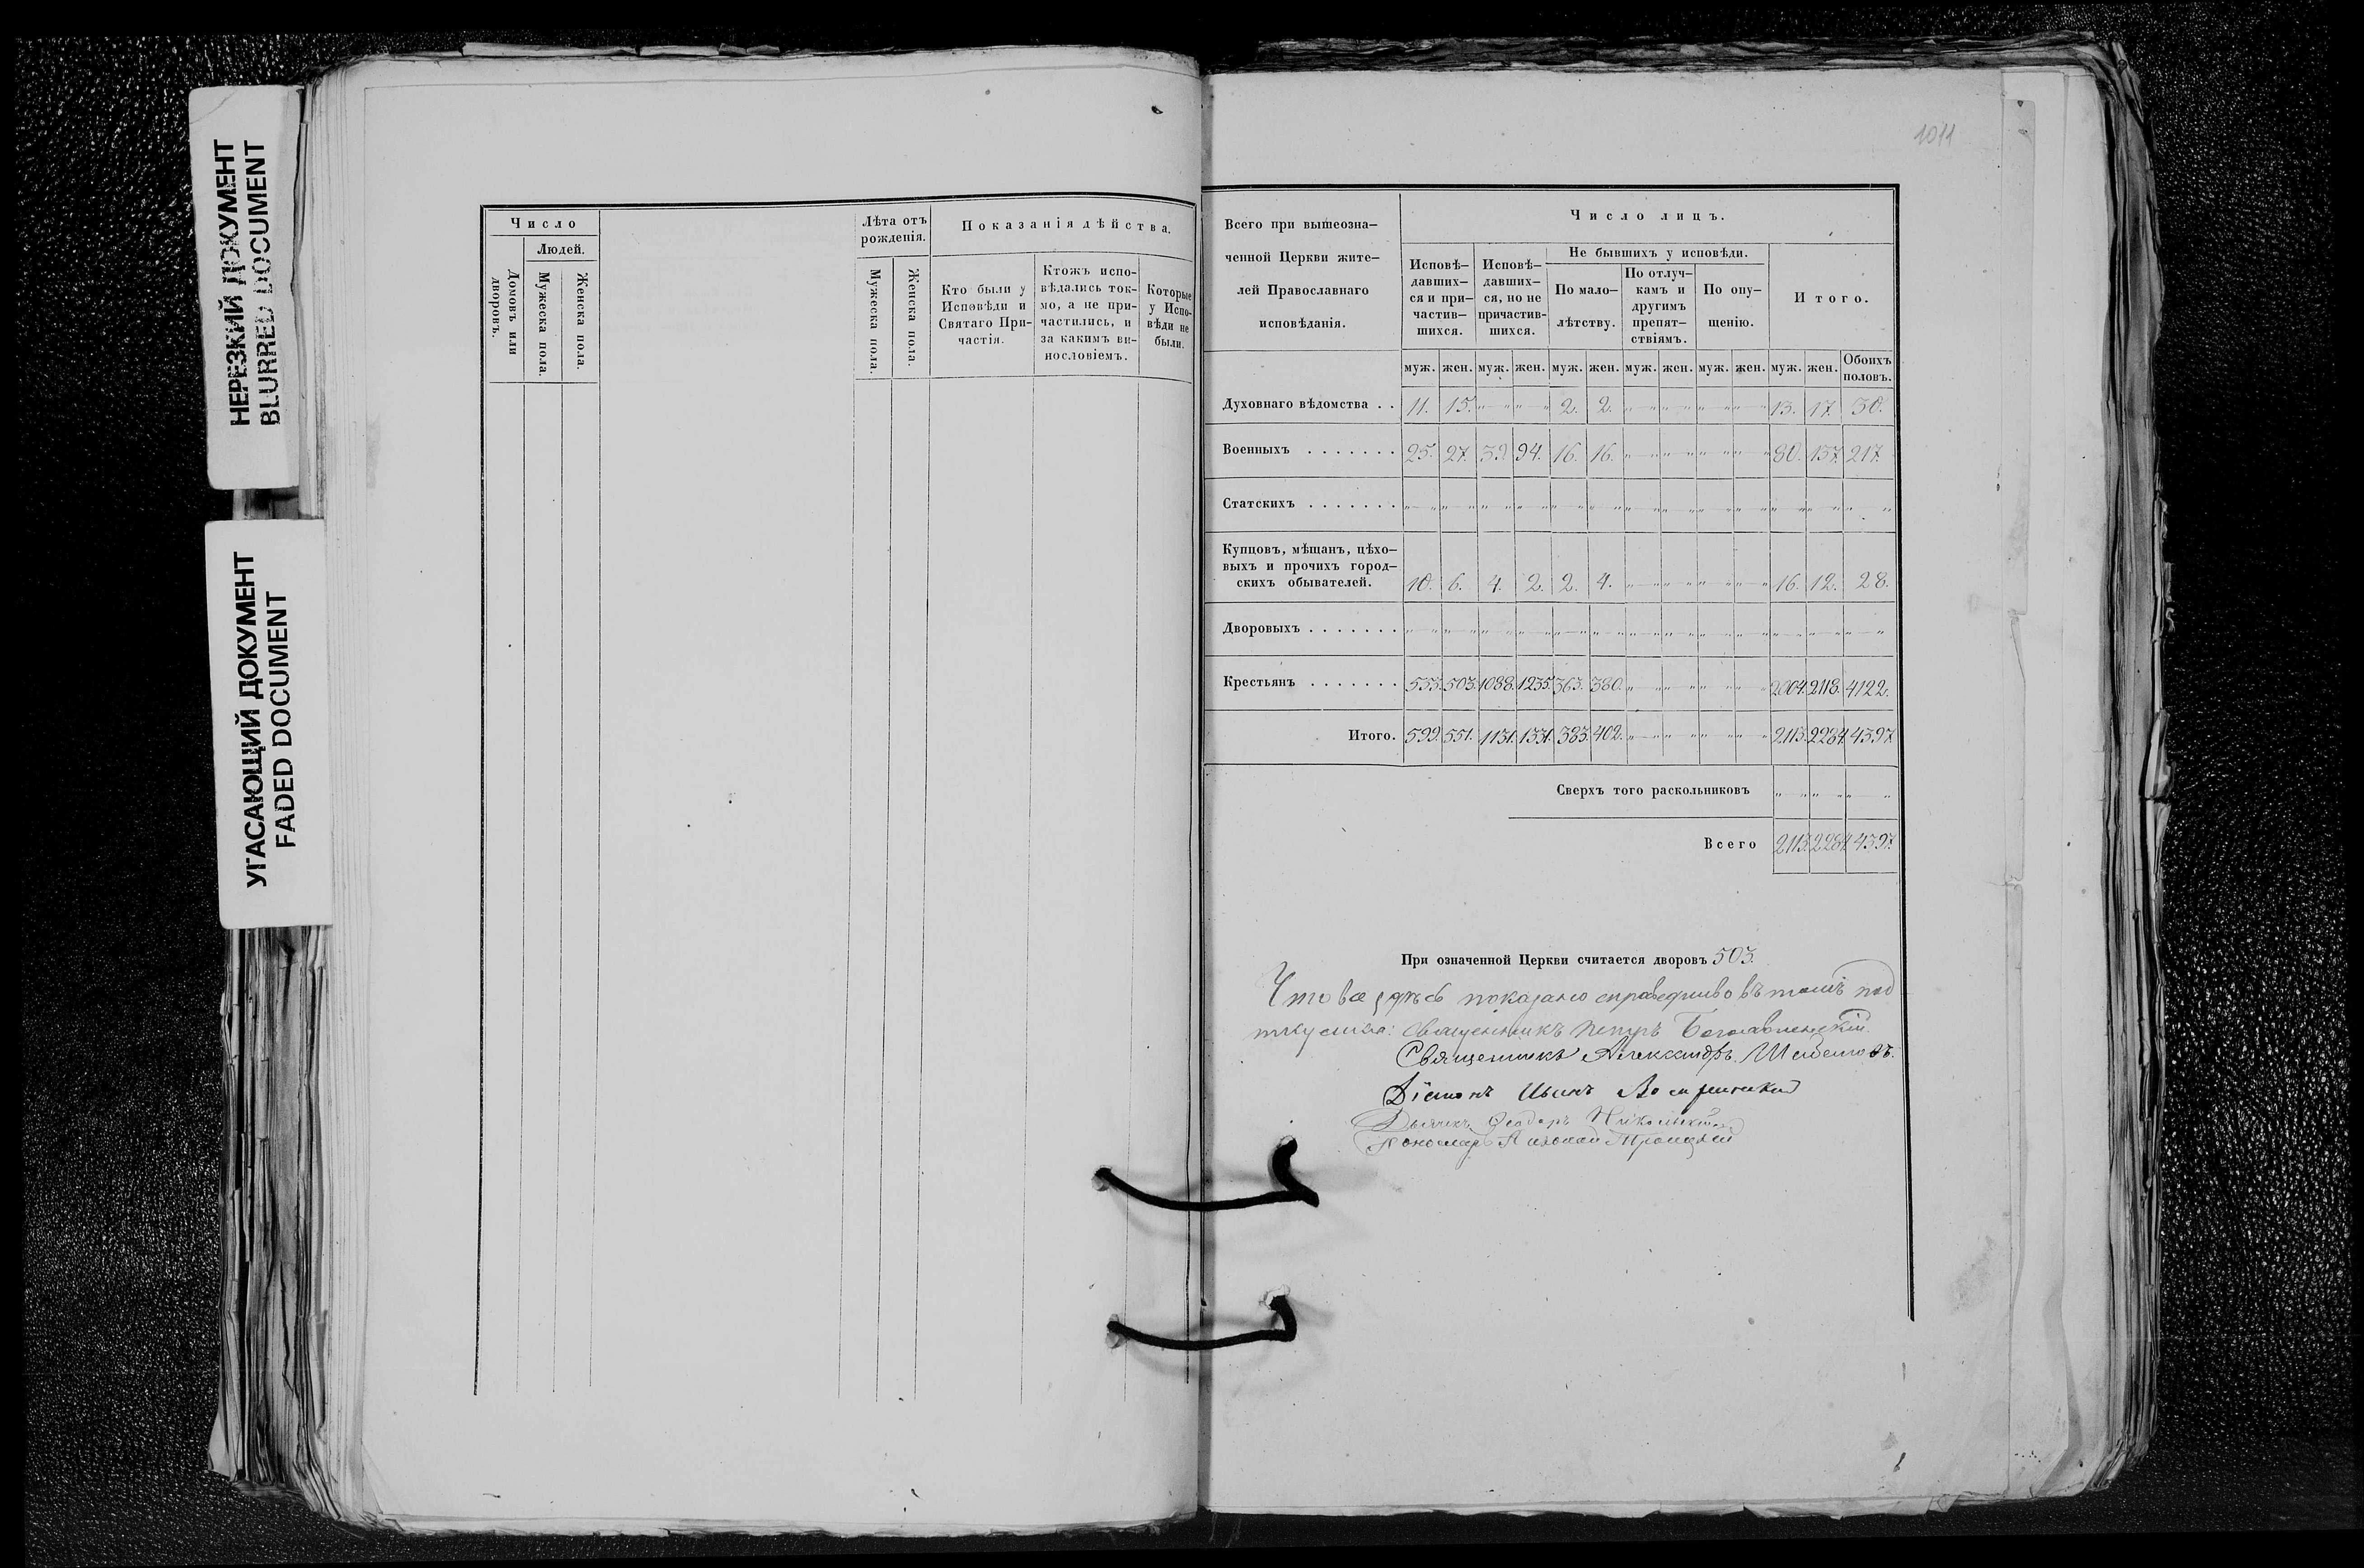 НЕРЕЗКИЙ ДОКУМЕНТ
BLURRED DOCUMENT
УГАСАЮЩИЙ ДОКУМЕНТ
FADED DOCUMENT
Число
Людей.
Домовъ или дворовъ.
Мужеска пола.
Женска пола.
Лѣта отъ
рожденія.
Мужеска пола.
Женска пола.
Показанія дѣйства.
Кто были у
Исповѣди и
Святаго При-
частія.
Ктожъ испо-
вѣдались ток-
мо, а не при-
частились, и
за какимъ ви-
нословіемъ.
Которые
у Испо-
вѣди не
были.
1011
Всего при вышеозна-
ченной Церкви жите-
лей Православнаго
исповѣданія.
Число лицъ.
Исповѣ-
давших-
ся и при-
частив-
шихся.
Исповѣ-
давших-
ся, но не
причастив-
шихся.
Не бывшихъ у исповѣди.
По мало-
лѣтству.
По отлуч-
камъ и
другимъ
препят-
ствіямъ.
По опу-
щенію.
Итого.
муж. жен. муж. жен. муж. жен. муж. жен. муж. жен. муж. жен. Обоихъ половъ.
Духовнаго вѣдомства . . 11. 15. " " " " 2. 2. " " " " " " " " 13. 17. 30.
Военныхъ . . . . . . . 25. 27. 39. 94. 16. 16. " " " " " " " " 80. 137. 217.
Статскихъ . . . . . . . " " " " " " " " " " " " " " " " " " " " " " " " " "
Купцовъ, мѣщанъ, цѣхо-
выхъ и прочихъ город-
скихъ обывателей. 10. 6. 4. 2. 2. 4. " " " " " " " " 16. 12. 28.
Дворовыхъ . . . . . . . " " " " " " " " " " " " " " " " " " " " " " " " " "
Крестьянъ . . . . . . . 553. 503. 1088. 1235. 363. 380. " " " " " " " " 2004. 2118. 4122.
Итого. 599. 551. 1131. 1331. 383. 402. " " " " " " " " 2113. 2284. 4397.
Сверхъ того раскольниковъ " " " " " "
Всего 2113. 2284. 4397.
При означенной Церкви считается дворовъ 503.
Что все здѣсь показано справедливо въ томъ под
писуемся: Священникъ Петръ Богоявленскій.
Священникъ Александръ
Діаконъ Иванъ
Дьячекъ Ѳеодоръ Никольскій
Пономарь Николай Троицкій